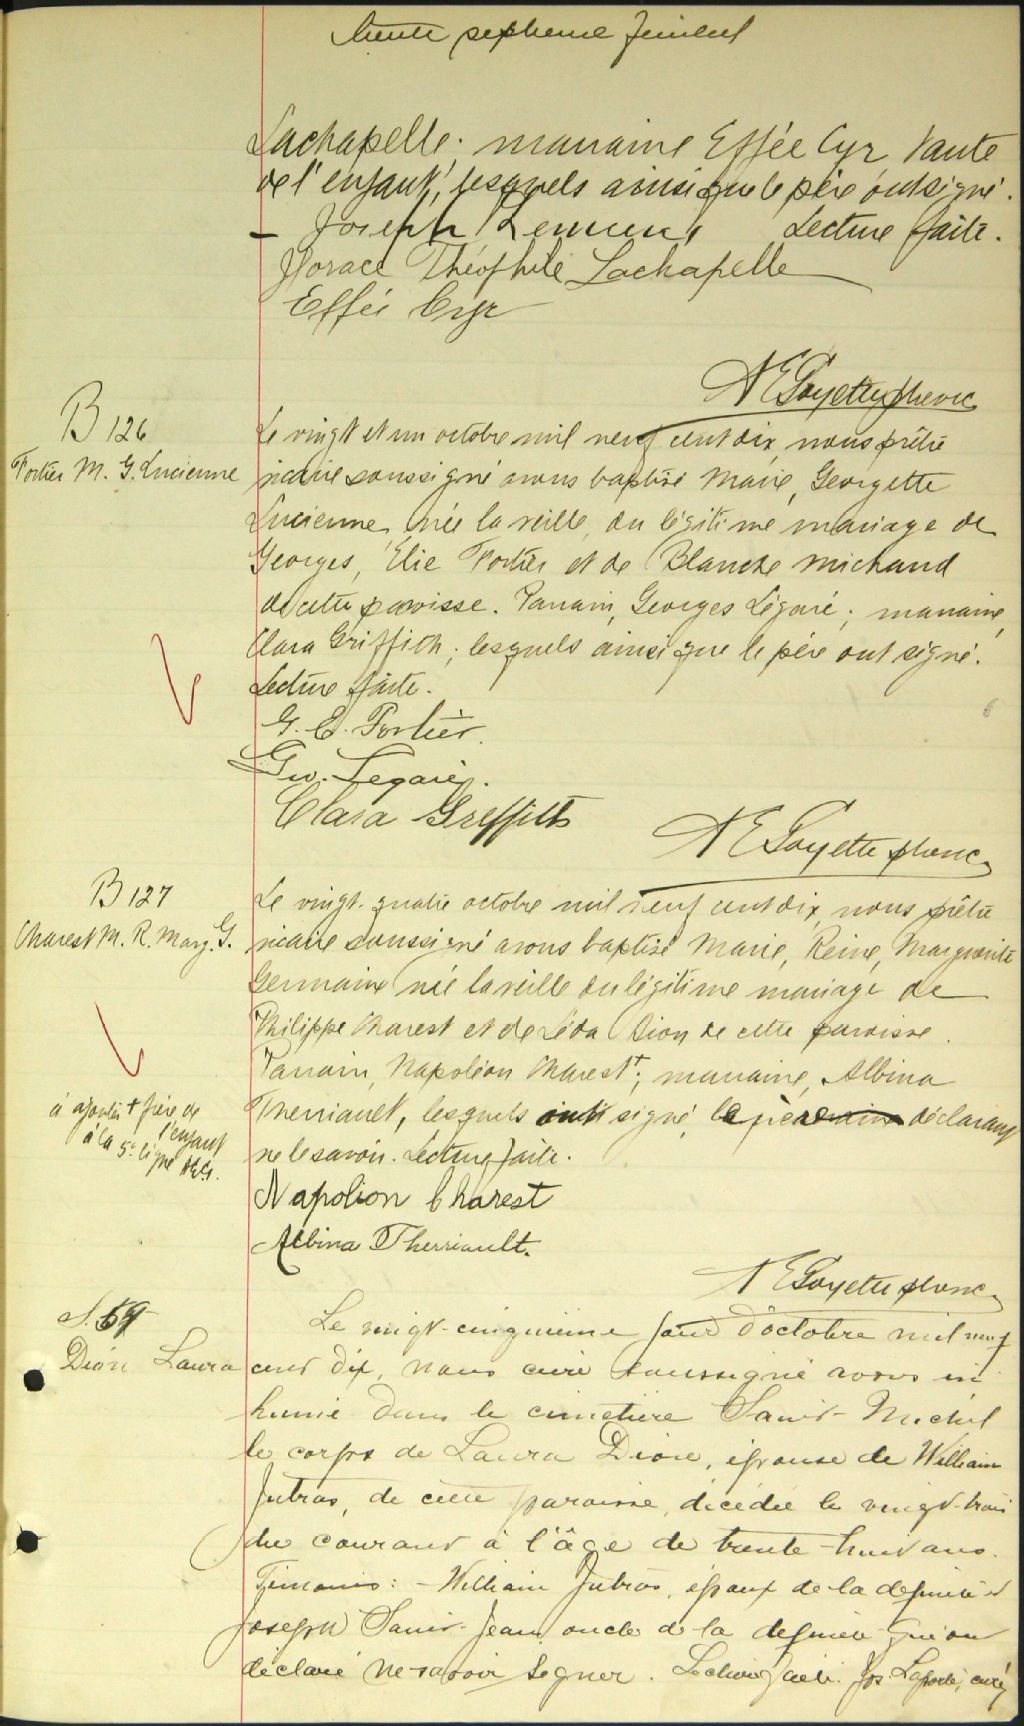 trente septième feuillet
Lachapelle. marraine Effée Cyr tante
de l'enfant, lesquels ainsi que le père ont signé.
Joseph Lecture faite.
Horace Théophile Lachapelle
Effée Cyr
A E Goyette ptre vic
B 126
Fortier M. G. Lucienne
Le vingt et un octobre mil neuf cent dix, nous prêtre
vicaire soussigné avons baptisé Marie, Georgette
Lucienne, née la veille, du légitime mariage de
Georges, Elie Fortier et de Blanche Michaud
de cette paroisse. Parrain, Georges Légaré; marraine,
Clara Griffith; lesquels ainsi que le père ont signé.
Lecture faite.
G. E. Fortier.
Geo. Legaré.
Clara Griffith
A E Goyette ptre vic
B 127
Charest M. R. Marg. G.
Le vingt-quatre octobre mil neuf cent dix, nous prêtre
vicaire soussigné avons baptisé Marie, Reine, Marguerite
Germaine née la veille du légitime mariage de
Philippe Charest et de Léda Dion de cette paroisse.
Parrain, Napoléon Charest +; marraine, Albina
à ajouter + frère de
l'enfant
à la 5e ligne AEG.
Therriault, lesquels ont signé, le père déclarant
ne le savoir. Lecture faite.
Napolion Charest
Albina Therriault.
A E Goyette ptre vic
S. 59
Dion Laura
Le vingt-cinquième jour d'octobre mil neuf
cent dix, nous curé soussigné avons in
humé dans le cimetière Saint-Michel
le corps de Laura Dion, épouse de William
Jutras, de cette paroisse, décédée le vingt-trois
du courant à l'âge de trente-huit ans.
Témoins: - William Jutras, époux de la défunte et
Joseph Saint-Jean, oncle de la défunte qui ont
déclaré ne savoir signer. Lecture faite. Jos Laporte, curé